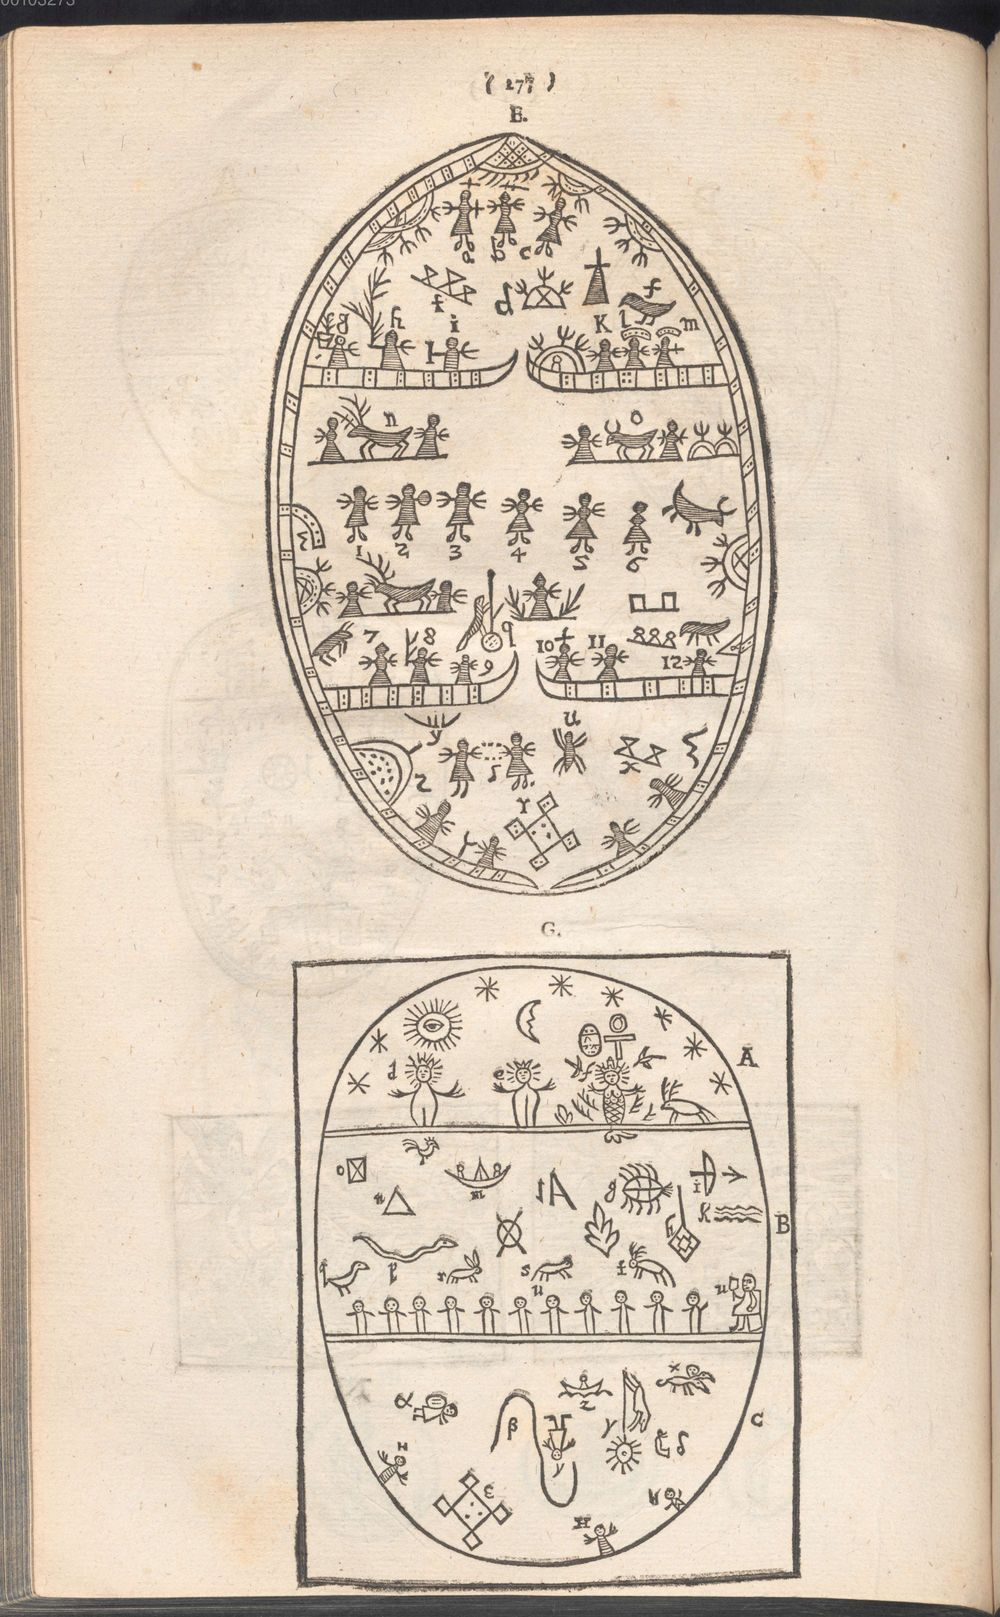 00103273
( 277 )
E.
a b c
f d f
g h i K l m
n o
1 2 3 4 5 6
7 8 9 q 10 11 12
y
z s u x
r
G.
A
d e
o m g i
n 1A h k B
q p r s t
u u
x
α z
β γ δ C
H γ
ε
H
H